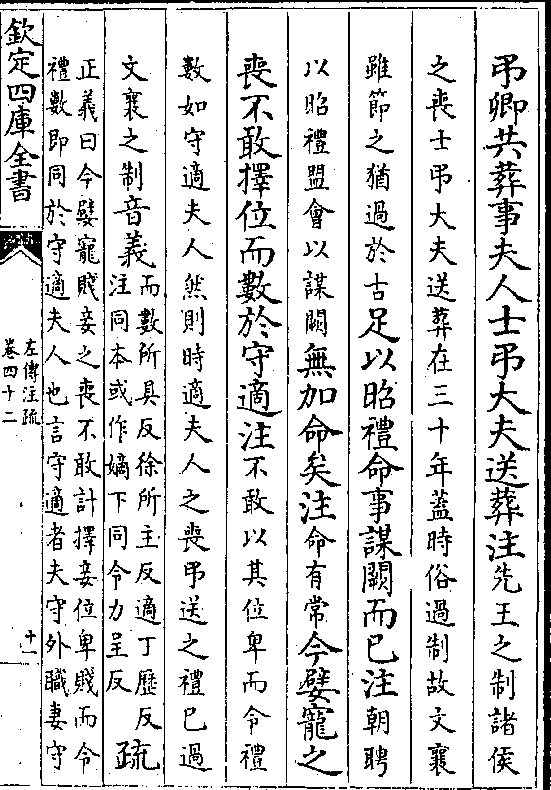 弔卿共葬事夫人士弔大夫送葬注先王之制諸侯
之喪士弔大夫送葬在三十年蓋時俗過制故文襄
雖節之猶過於古足以昭禮命事謀闕而已注朝聘
以昭禮盟會以謀闕無加命矣注命有常今嬖寵之
喪不敢擇位而數於守適注不敢以其位卑而令禮
數如守適夫人然則時適夫人之喪弔送之禮已過
文襄之制音義而數所具反徐所主反適丁歷反
注同本或作嫡下同令力呈反疏
正義曰今嬖寵賤妾之喪不敢計擇妾位卑賤而令
禮數即同於守適夫人也言守適者夫守外職妻守
欽定四庫全書
左傳注疏
卷四十二
十一